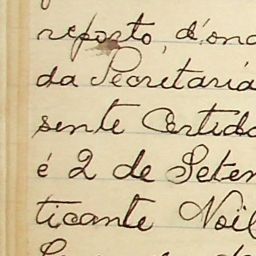 reporto, d'ond
da Secretaria
sente Certidã
é 2 de Setem
ticante Noil